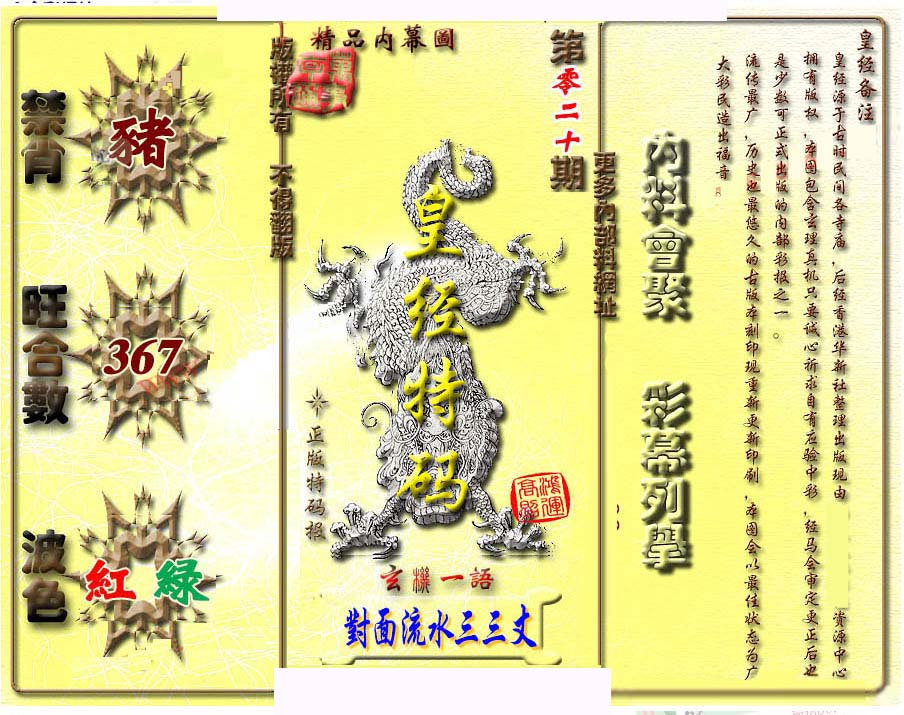 精品內幕圖
版權所有
不得翻版
第零二十期
更多內部料網址
禁肖
豬
旺合數
367
波色
紅 綠
皇经特码
正版特码报
鴻運高照
玄機一語
對面流水三三丈
內料會聚
彩幕列舉
皇经备注
皇经源于古时民间各寺庙,后经香港华新社整理出版现由 资源中心
拥有版权,本图包含玄理真机只要诚心祈求自有应验中彩,经马会审定更正后也
是少数可正式出版的内部彩报之一。
流传最广,历史也最悠久的古版本刻印现重新更新印刷,本图会以最佳状态为广
大彩民造出福音